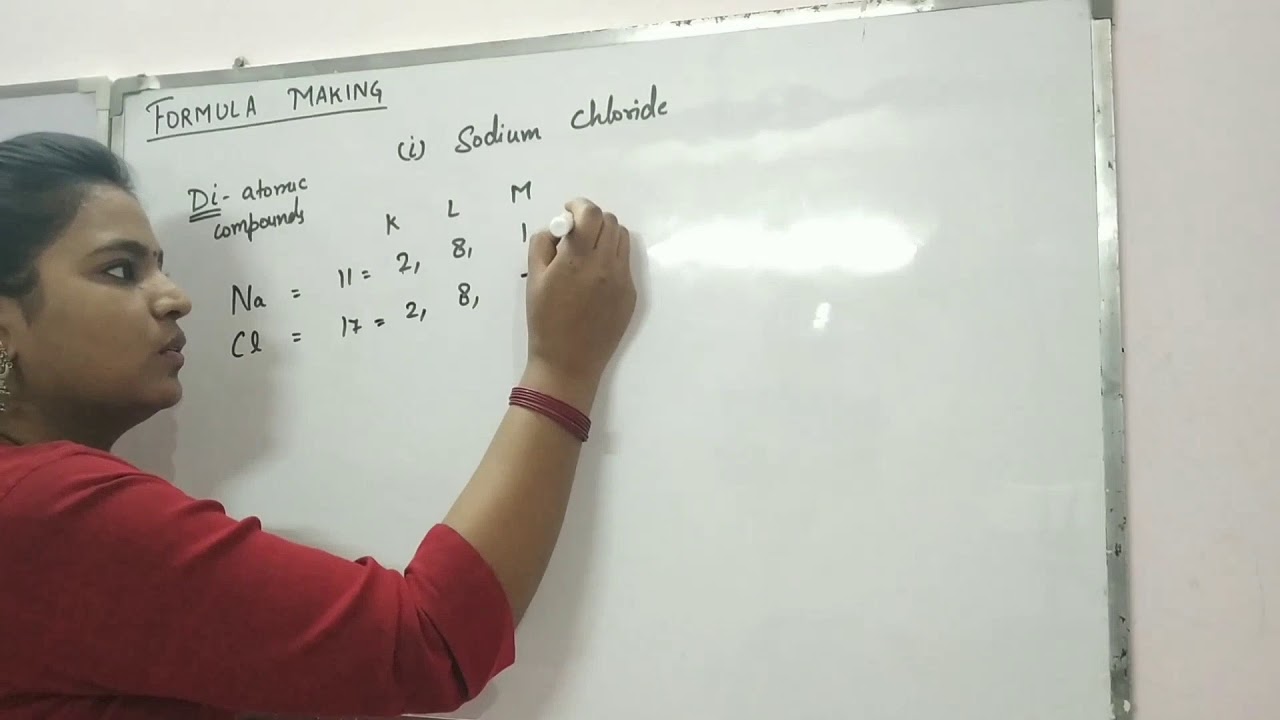 FORMULA MAKING
(i) Sodium Chloride
Di-atomic
compounds
K L M
Na = 11 = 2, 8, 1
Cl = 17 = 2, 8,